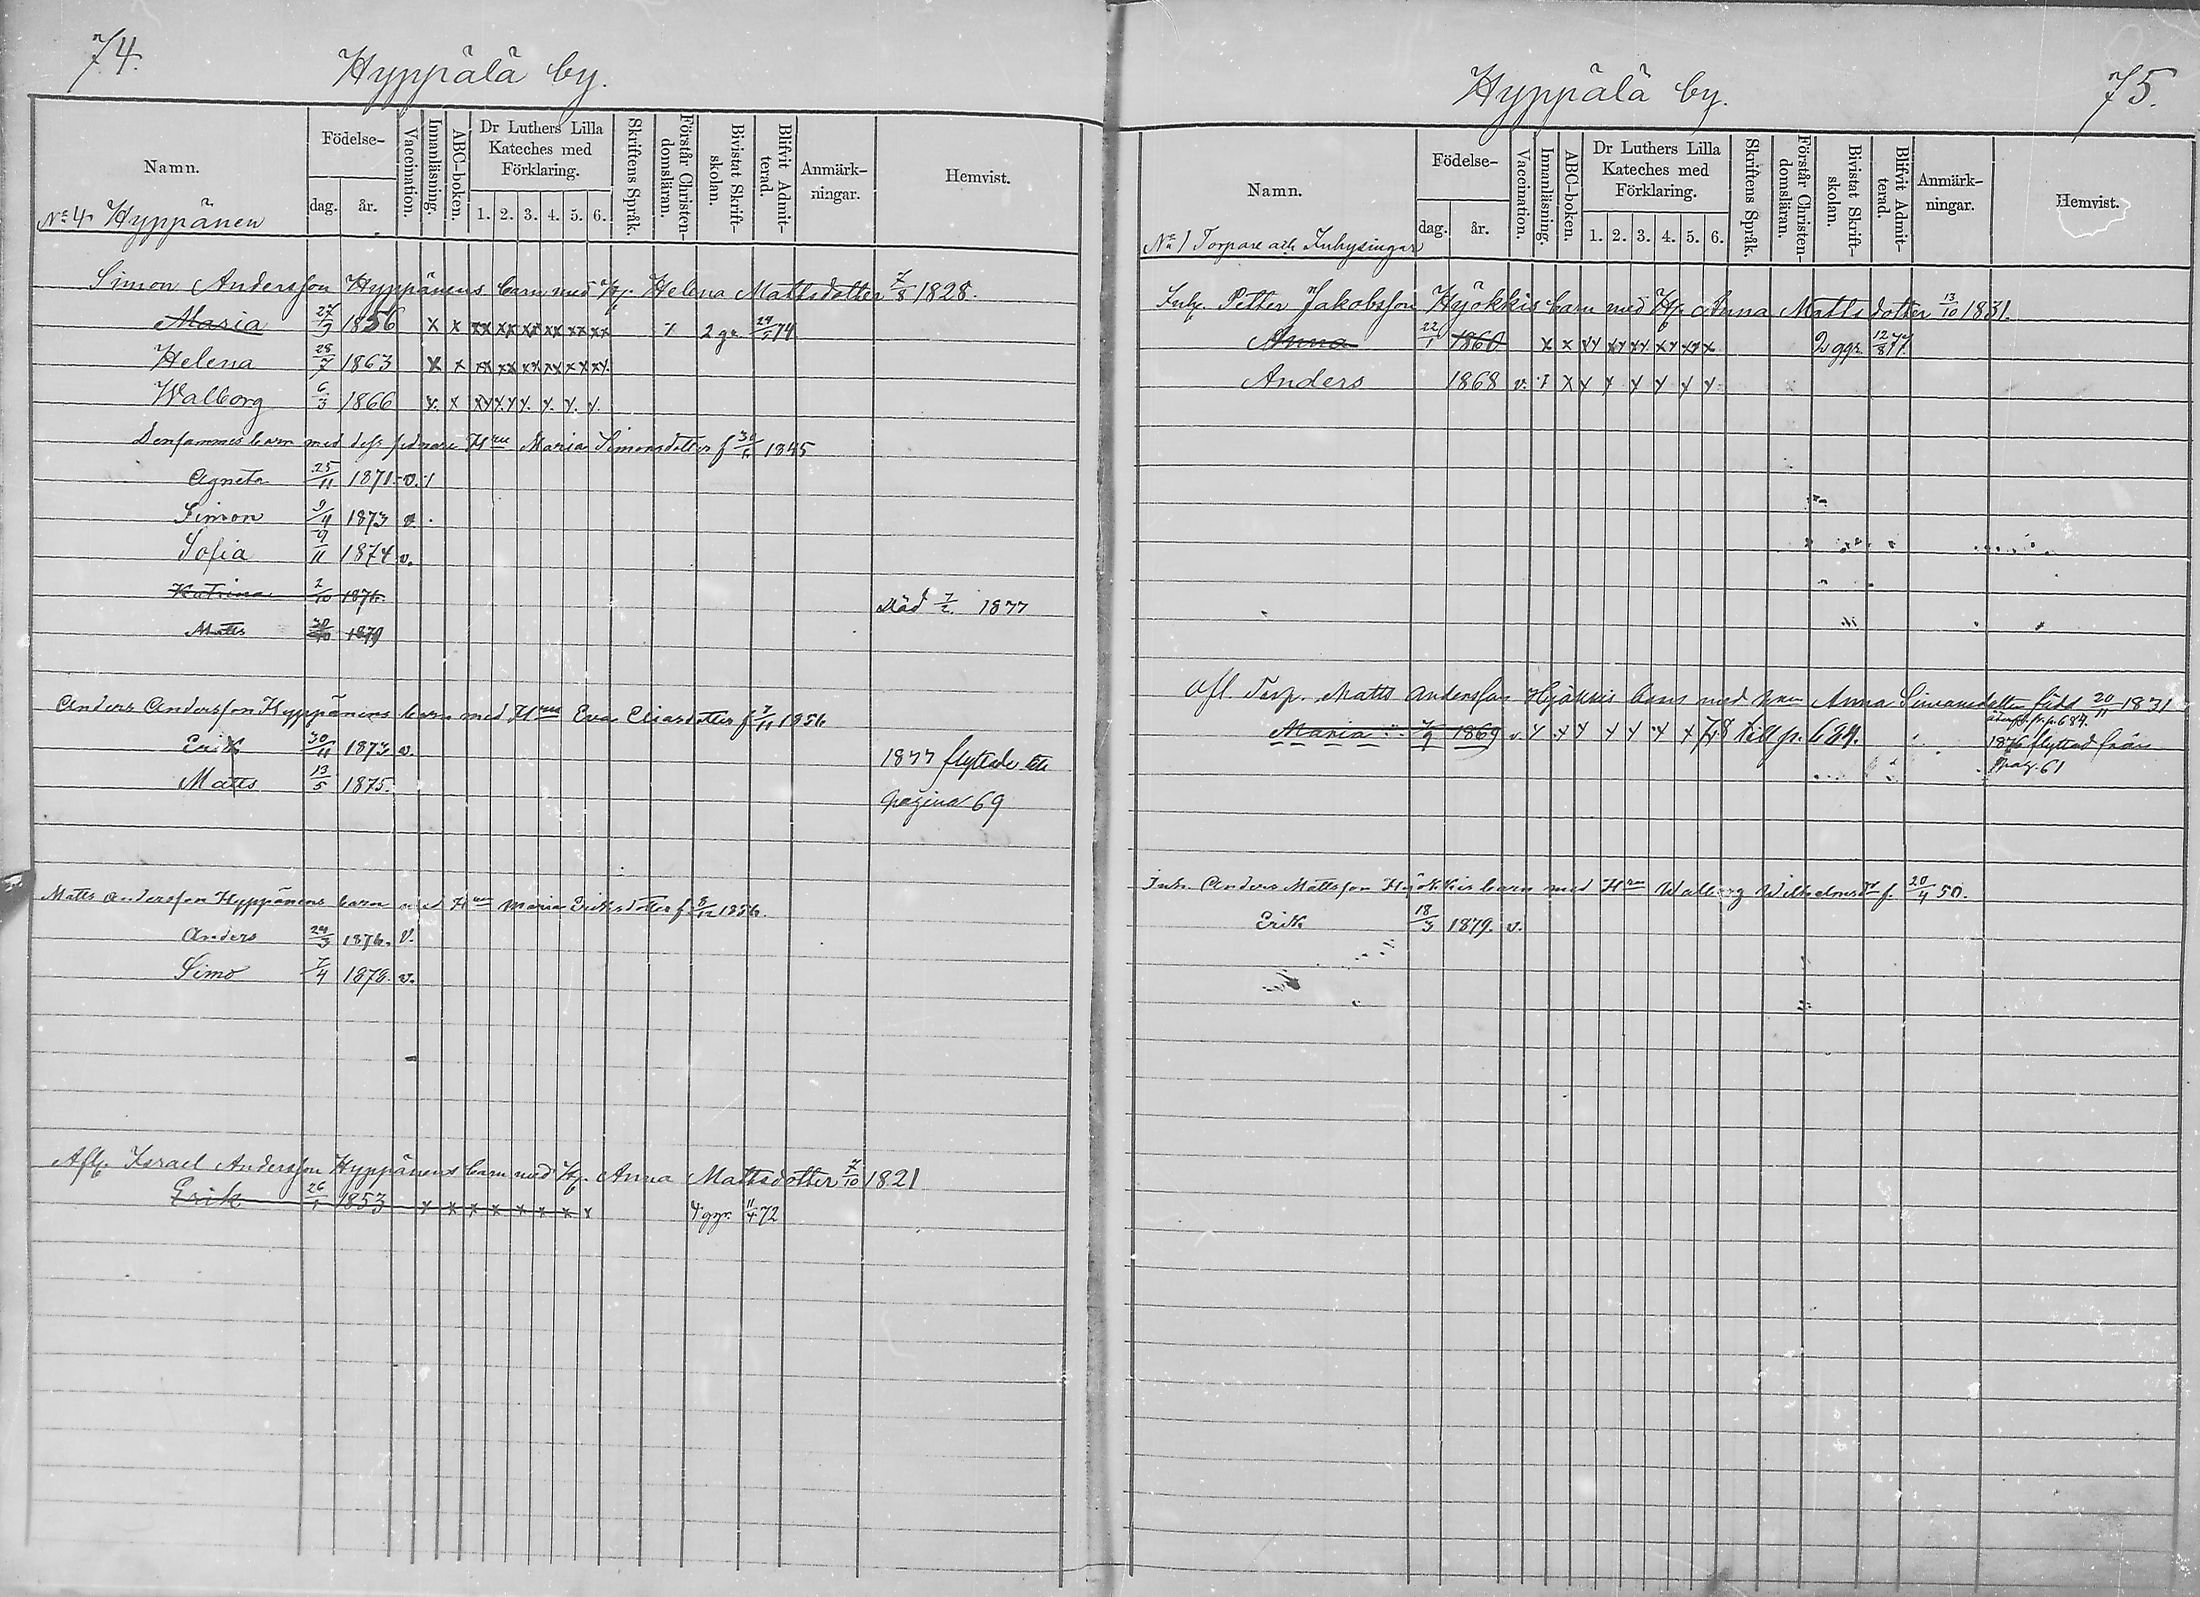 74.
Hyppälä by.
Namn.
Födelse-
dag. år.
Vaccination.
Innanläsning.
ABC-boken.
Dr Luthers Lilla
Kateches med
Förklaring.
1. 2. 3. 4. 5. 6.
Skriftens Språk.
Förstår Christen-
domsläran.
Bivistat Skrift-
skolan.
Blifvit Admit-
terad.
Anmärk-
ningar.
Hemvist.
No 4 Hyppänen
Simon Andersson Hyppänens barn med H. Helena Mattsdotter 7/8 1828.
Maria 27/9 1856 x x xx xx xx xx xx xx x 2 gr. 29/5 74
Helena 28/7 1863 x x xx xx xx xx xx xx
Walborg 6/3 1866 x. x xx xx x. x. x. x.
Densammes barn med dess sednare Hru Maria Simonsdotter f 1845
Agneta 25/11 1871. v. 1
Simon 9/4 1873 v.
Sofia 9/11 1874 v.
Katrina 2/10 1876. Död 7/2 1877
Matts 1879
Anders Andersson Hyppänens barn med Hru Eva Eliasdotter f 1856
Erik 30/11 1873 v. 1877 flyttade till
Matts 13/5 1875. pagina 69
Matts Andersson Hyppänens barn med Hru Maria Eriksdotter f. 8/12 1856.
Anders 29/3 1876. v.
Simo 7/4 1878. v.
Afl. Israel Andersson Hyppänens barn med H. Anna Mattsdotter 7/10 1821
Erik 26/1 1853 x x x x x x x x 4 ggr. 11/4 72
Hyppälä by.
75.
Namn.
Födelse-
dag. år.
Vaccination.
Innanläsning.
ABC-boken.
Dr Luthers Lilla
Kateches med
Förklaring.
1. 2. 3. 4. 5. 6.
Skriftens Språk.
Förstår Christen-
domsläran.
Bivistat Skrift-
skolan.
Blifvit Admit-
terad.
Anmärk-
ningar.
Hemvist.
No 1 Torpare och Inhysingar
Inh. Petter Jakobsson Hyökkis barn med H. Anna Mattsdotter 13/10 1831.
Anna 22/1 1860 x x xx xx xx xx xx x 2 ggr. 12/8 77.
Anders 1868 v. x x x x x x x x
Afl. Torp. Matts Andersson Hyökkis barn med Hru Anna Simonsdotter född 20/11 1831
Maria 7/9 1869 v x x x x x x x 78 till p. 684. återfl. fr. p. 684.
1876 flyttad från
Pag. 61
Inh. Anders Mattsson Hyökkis barn med Hru Walborg Wilhelmsdr f. 20/4 50.
Erik 18/3 1879. v.